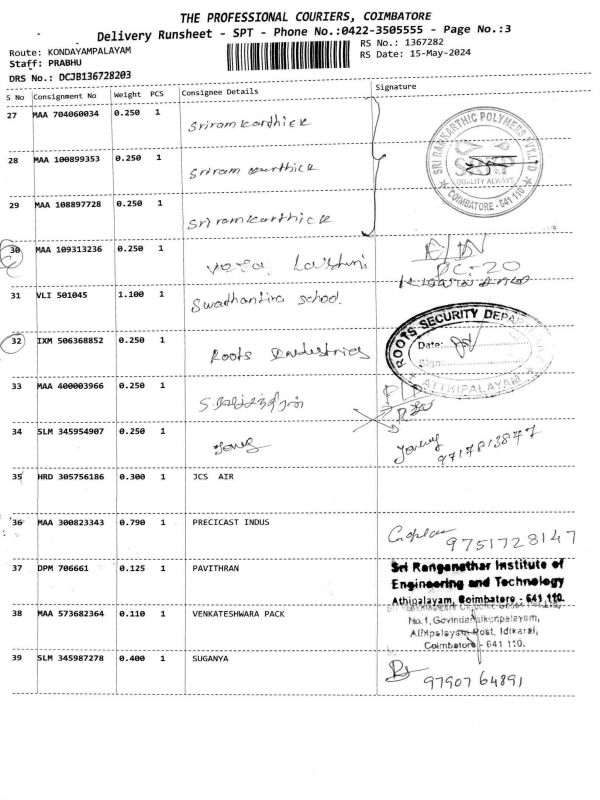 THE PROFESSIONAL COURIERS, COIMBATORE
Delivery Runsheet - SPT - Phone No.:0422-3505555 - Page No.:3
Route: KONDAYAMPALAYAM
RS No.: 1367282
Staff: PRABHU
RS Date: 15-May-2024
DRS No.: DCJB136728203
S No Consignment No Weight PCS Consignee Details Signature
27 MAA 704060034 0.250 1 Sriram karthick
28 MAA 100899353 0.250 1 Sriram karthick
29 MAA 108897728 0.250 1 Sriram karthick
SRI RAM KARTHIC POLYMERS PVT.LTD
QUALITY ALWAYS
COIMBATORE - 641 110
30 MAA 109313236 0.250 1
31 VLI 501045 1.100 1 Swathantira school.
32 IXM 506368852 0.250 1 Roots Industries
ROOTS SECURITY
Date:
Sign:
ATTHIPALAYAM
33 MAA 400003966 0.250 1
34 SLM 345954907 0.250 1
9717813847
35 HRD 305756186 0.300 1 JCS AIR
36 MAA 300823343 0.790 1 PRECICAST INDUS
9751728147
37 DPM 706661 0.125 1 PAVITHRAN
Sri Ranganathar Institute of
Engineering and Technology
Athipalayam, Coimbatore - 641 110.
38 MAA 573682364 0.110 1 VENKATESHWARA PACK
No.1, Govindanaikenpalayam,
Athipalayam Post, Idikarai,
Coimbatore - 641 110.
39 SLM 345987278 0.400 1 SUGANYA
9790764891